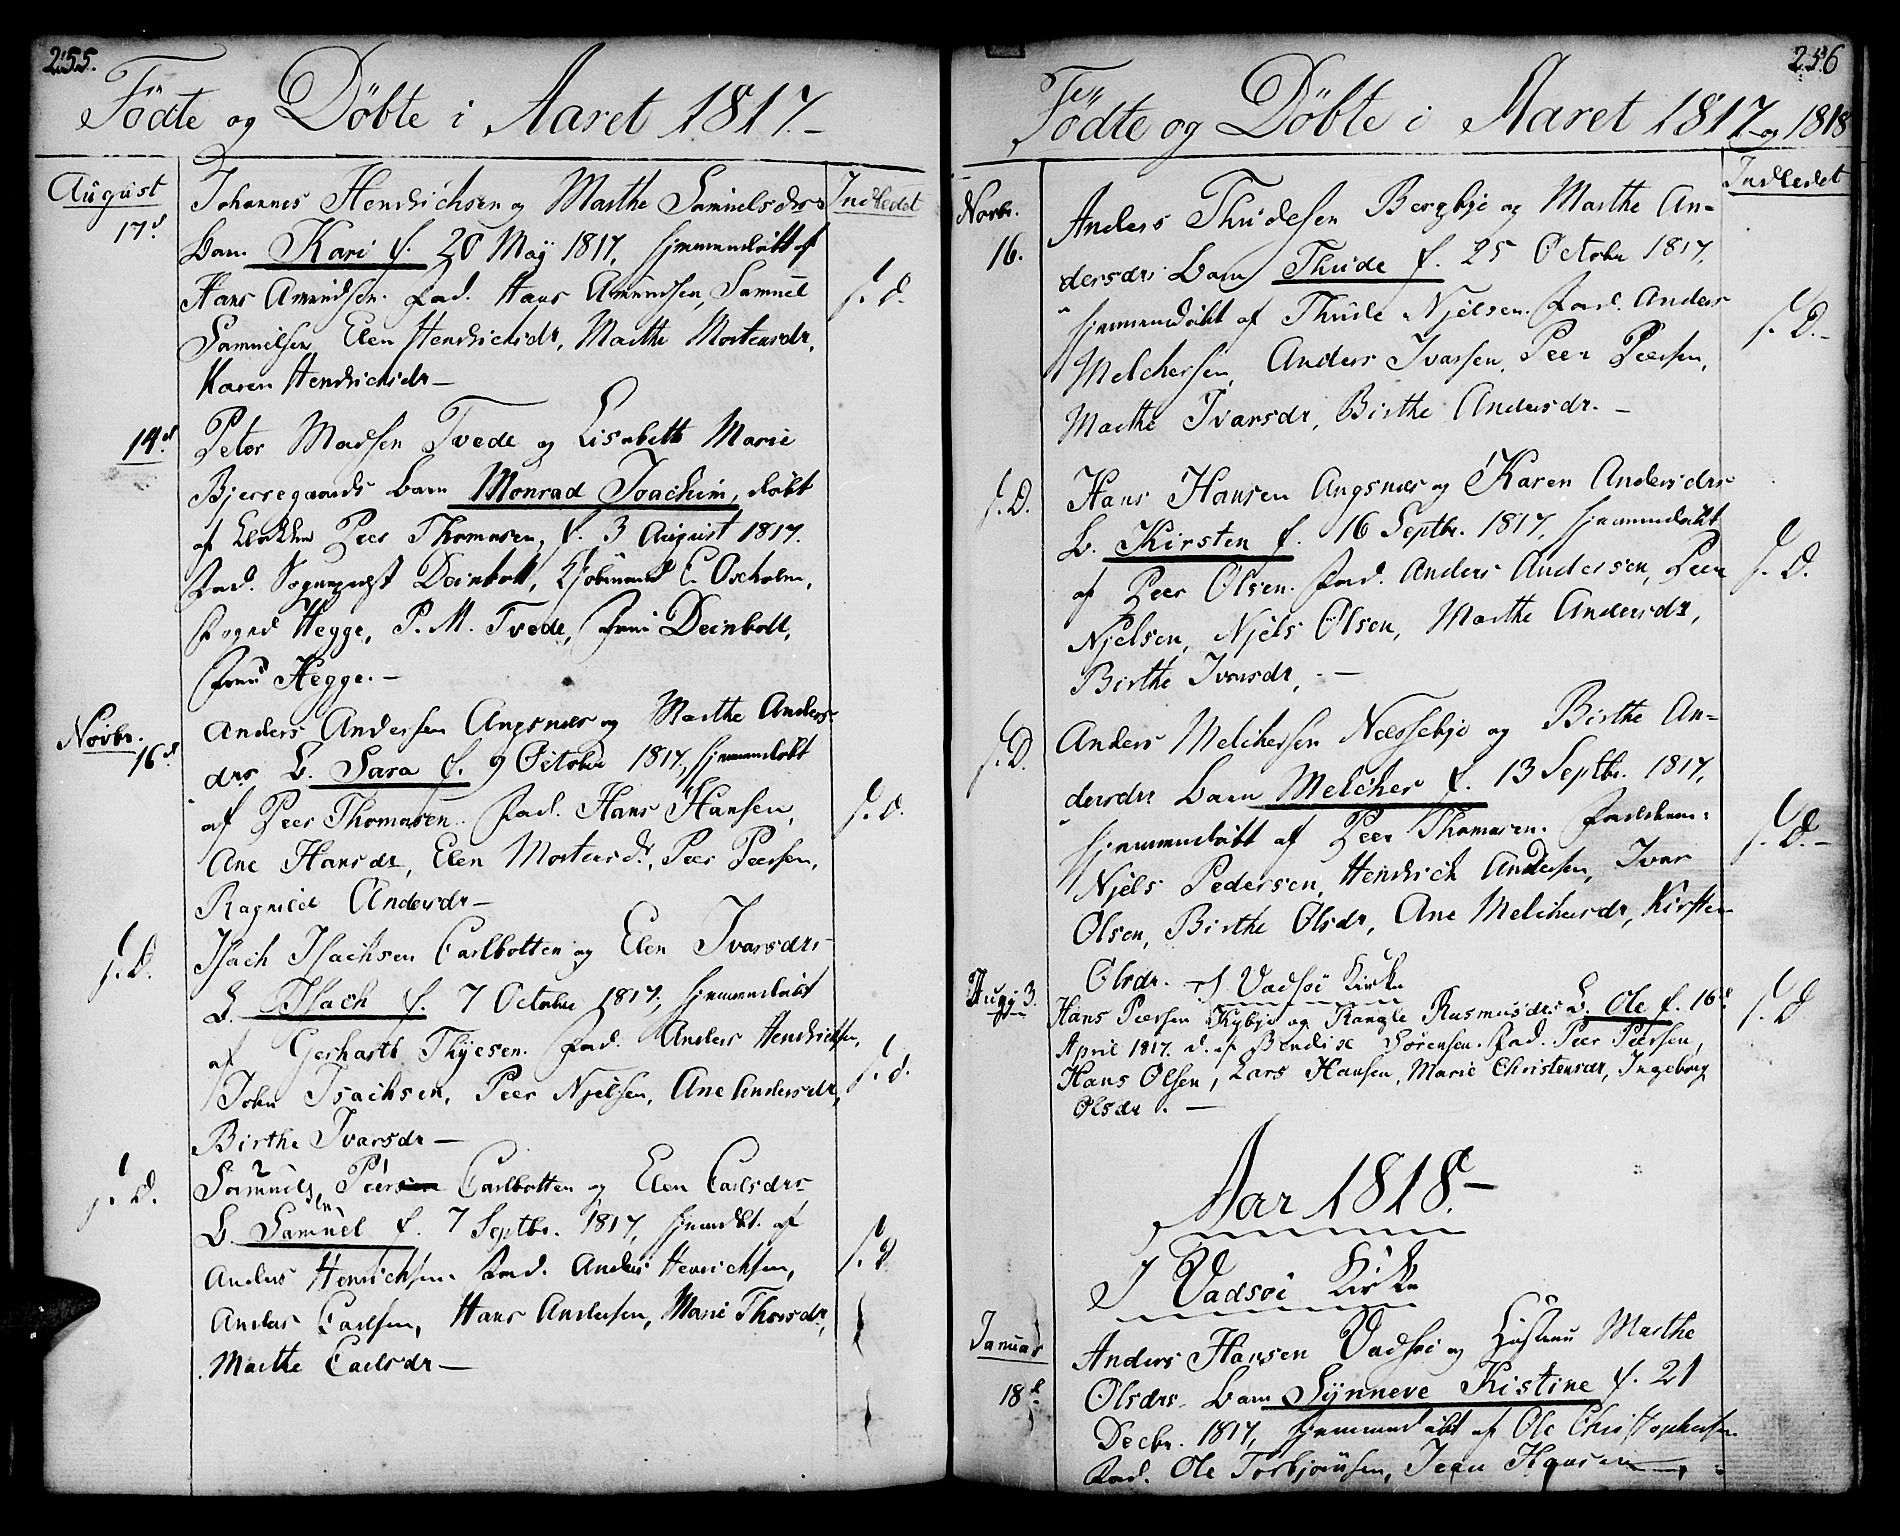 255.
Födte og Döbte i Aaret 1817.-
August
17d
Indledet
Johannes Hendrichsen og Marthe Samuelsdrs
Barn Kari f. 20 Maÿ 1817, hjemmedöbt af
Hans Amundsen. Fad. Hans Amundsen, Samuel
s. d.
Samuelsen, Elen Hendrichsdr, Marthe Mortensdr,
Karen Hendrichsdr-
14d
Peter Madsen Tvede og Lisabeth Marie
Bjerregaards Barn Monrad Joachim, döbt
af Klokker Peer Thomasen, f. 3 August 1817.
Fad. Sogneprest Deinboll, Kjöbmand C. Oxholm,
Foged Hegge, P. M. Tvede, Frue Deinboll,
Frue Hegge.-
Novbr.
16d.
Anders Andersen Angsnæs og Marthe Anders-
drs B. Sara f. 9 October 1817, hjemmedöbt
af Peer Thomasen. Fad. Hans Hansen,
s. d.
Ane Hansdr, Elen Mortensdr, Peer Peersen,
Ragnild Andersdr-
s. D.
Isach Isachsen Carlbotten og Elen Ivarsdrs
B. Isach f. 7 October 1817, hjemmedöbt
af Gerhardt Thyesen. Fad. Anders Hendrichsen,
s. d.
John Isachsen, Peer Njelsen, Ane Andersdr,
Birthe Ivarsdr-
s. D.
Samuels 2 Peersen 1 Carlbotten og Elen Carlsdrs
B. Samuel f. 7 Septbr. 1817, hjemdbt. af
Anders Henrichsen. Fad. Anders Henrichsen,
s. d
Anders Carlsen, Hans Andersen, Marie Thorsdr,
Marthe Carlsdr-
256
Födte og Döbte i Aaret 1817 og 1818
Indledet
Novbr.
16.
Anders Thudesen Bergbye og Marthe An-
dersdrs Barn Thude f. 25 October 1817,
hjemmedöbt af Thude Njelsen. Fad. Anders
s. D.-
Melchersen, Anders Ivarsen, Peer Peersen,
Marthe Ivarsdr, Birthe Andersdr.-
s. D.
Hans Hansen Angsnæs og Karen Andersdrs
B. Kirsten f. 16 Septbr. 1817, hjemmedöbt
af Peer Olsen. Fad. Anders Andersen, Peer
s. D.
Njelsen, Njels Olsen, Marthe Andersdr,
Birthe Ivarsdr,.-
s. D
Anders Melchersen Næssebye og Birthe An-
dersdrs Barn Melcher f. 13 Septbr. 1817,
hjemmedöbt af Peer Thomasen. Fadderne:
s. D.-
Njels Pedersen, Hendrich Andersen, Ivar
Olsen, Birthe Olsdr, Ane Melchersdr, Kirsten
Olsdr. I Vadsöe Kirke
Aug. 3.
Hans Peersen Kybye og Rangle Rasmusdrs B. Ole f. 16d
s. D
April 1817. d. af Bendixe Sörensen. Fad. Peer Peersen,
Hans Olsen, Lars Hansen, Marie Christensdr, Ingeborg
Olsdr.-
Aar 1818.-
I Vadsöe Kirke
Januar
18d
Anders Hansen Vadsöe og Hustrue Marthe
Olsdrs Barn Synneve Kistine f. 21
Decbr. 1817, hjemmedöbt af Ole Christophersen
Fad. Ole Torbjörnsen, Jens Hansen